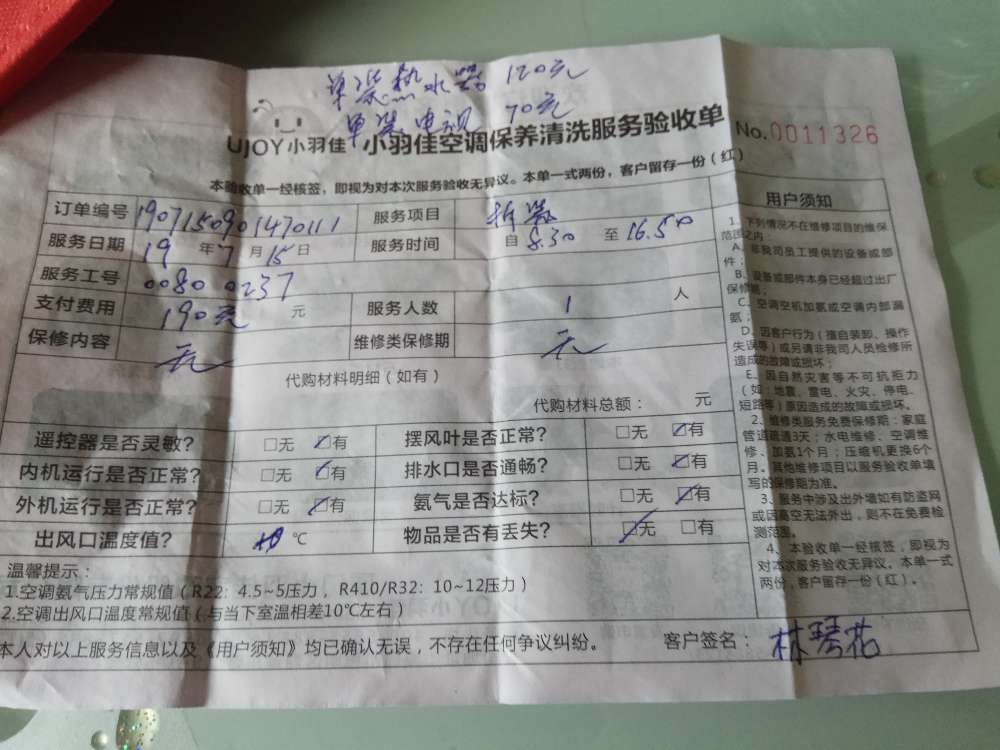 单装热水器 120元
单装电视 70元
UJOY小羽佳 小羽佳空调保养清洗服务验收单
No.0011326
本验收单一经核签，即视为对本次服务验收无异议。本单一式两份，客户留存一份（红）
订单编号 1907150901470111 服务项目 拆装
服务日期 19年7月15日 服务时间 自 8.30 至 16.50
服务工号 0080 0237
支付费用 190元 元 服务人数 1 人
保修内容 无 维修类保修期 无
代购材料明细（如有）
代购材料总额： 元
遥控器是否灵敏? □无 ☑有 摆风叶是否正常? □无 ☑有
内机运行是否正常? □无 ☑有 排水口是否通畅? □无 ☑有
外机运行是否正常? □无 ☑有 氨气是否达标? □无 ☑有
出风口温度值? ℃ 物品是否有丢失? ☑无 □有
温馨提示：
1.空调氨气压力常规值（R22：4.5~5压力，R410/R32：10~12压力）
2.空调出风口温度常规值（与当下室温相差10℃左右）
本人对以上服务信息以及《用户须知》均已确认无误，不存在任何争议纠纷。 客户签名：林琴花
用户须知
1、下列情况不在维修项目的维保
范围之内：
A、非我司员工提供的设备或部
件；
B、设备或部件本身已经超过出厂
保修期；
C、空调空机加氨或空调内部漏
氨；
D、因客户行为（擅自装卸、操作
失误等）或另请非我司人员检修所
造成的故障或损坏；
E、因自然灾害等不可抗拒力
（如：地震、雷电、火灾、停电、
短路等）原因造成的故障或损坏。
2、维修类服务免费保修期：家庭
管道疏通3天；水电维修、空调维
修、加氨1个月；压缩机更换6个
月。其他维修项目以服务验收单填
写的保修期为准。
3、服务中涉及出外墙如有防盗网
或因高空无法外出，则不在免费检
测范围。
4、本验收单一经核签，即视为
对本次服务验收无异议。本单一式
两份，客户留存一份（红）。